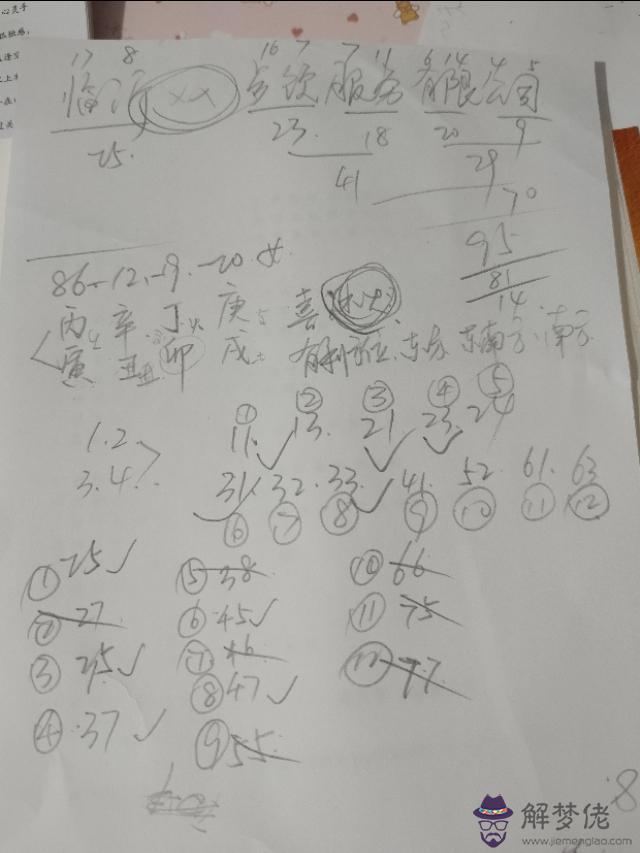 17 8 16 7 7 11 6 14 4 5
临沂 XX 餐饮服务有限公司
25. 23. 18 20 9
41 29
70
95
86-12-9-20 女
81
14
丙 辛 丁火 庚 喜 木火
寅 丑 卯 戌土 有利方位 东方 东南方 南方
① ② ③ ④ ⑤
1.2 11. 13. 21 23. 24
3.4 31. 32. 33. 41. 52. 61. 63
⑥ ⑦ ⑧ ⑨ ⑩ ⑪ ⑫
① 25 ✓ ⑤ 38 ⑩ 66
② 27 ⑥ 45 ✓ ⑪ 75
③ 35 ✓ ⑦ 46 ⑫ 77
④ 37 ✓ ⑧ 47 ✓
⑨ 55
8
解梦佬
www.jiemenglao.com